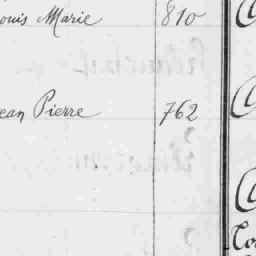 ouis Marie 810
ean Pierre 762